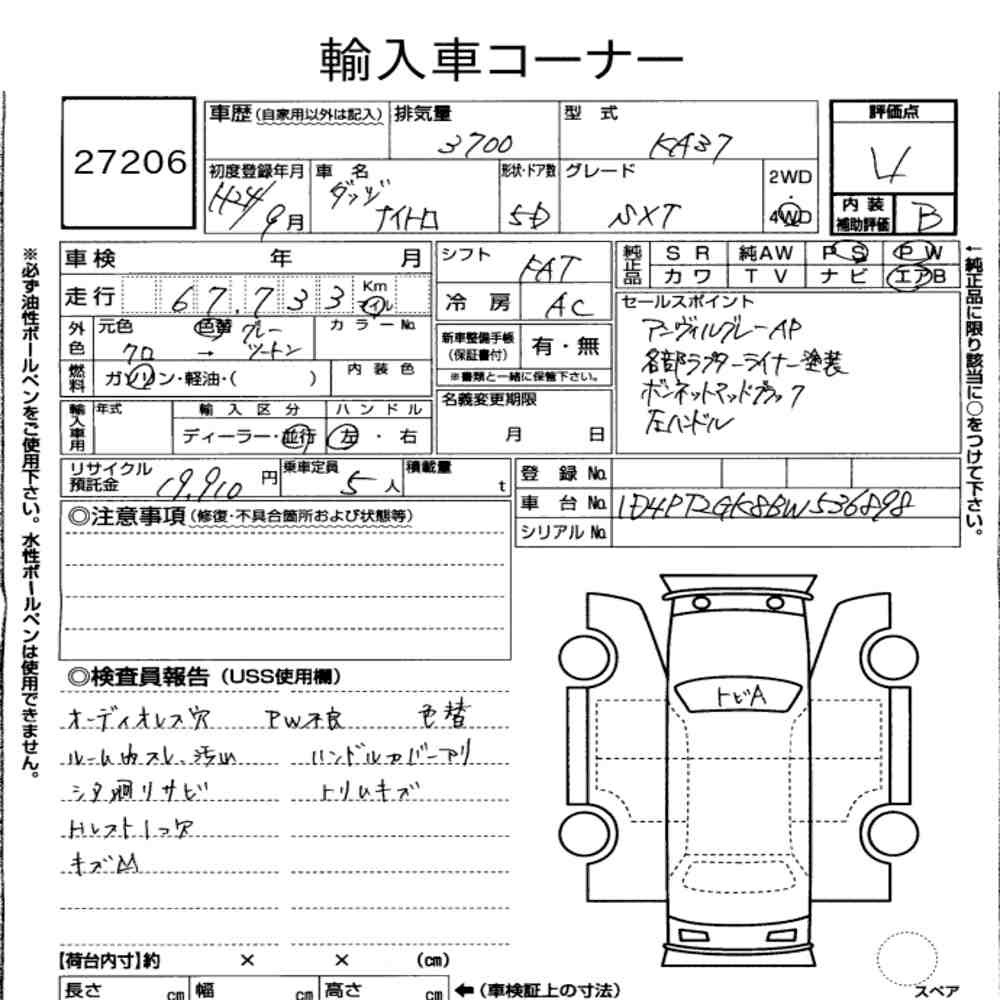 輸入車コーナー
27206
車歴(自家用以外は記入) 排気量 3700 型式 KA37
評価点 4
初度登録年月 H24/9月 車名 ダッジ ナイトロ 形状・ドア数 5D グレード SXT 2WD 4WD
内装補助評価 B
車検 年 月
走行 67,733 Km マイル
外色 元色 クロ → 色替 グレー ツートン カラーNo.
燃料 ガソリン・軽油・( ) 内装色
輸入車用 年式 輸入区分 ディーラー・並行 ハンドル 左・右
シフト FAT
冷房 AC
新車整備手帳(保証書付) 有・無
※書類と一緒に保管下さい。
名義変更期限
月 日
純正品 SR 純AW PS PW
カワ TV ナビ エアB
セールスポイント
アーヴィルグレーAP
各部ラプターライナー塗装
ボンネットマッドブラック
左ハンドル
←純正品に限り該当に○をつけて下さい。
リサイクル預託金 19,910円 乗車定員 5人 積載量 t
登録No.
車台No. 1D4PT2GK8BW536898
シリアルNo.
◎注意事項(修復・不具合箇所および状態等)
※必ず油性ボールペンをご使用下さい。水性ボールペンは使用できません。
◎検査員報告(USS使用欄)
オーディオレス穴 PW不良 色替
ルーム内スレ、汚れ ハンドルカバーアリ
シタ廻リサビ トリムキズ
Hレスト1コ穴
キズ凹
トビA
【荷台内寸】約 × × (cm)
長さ cm 幅 cm 高さ cm ←(車検証上の寸法)
スペア